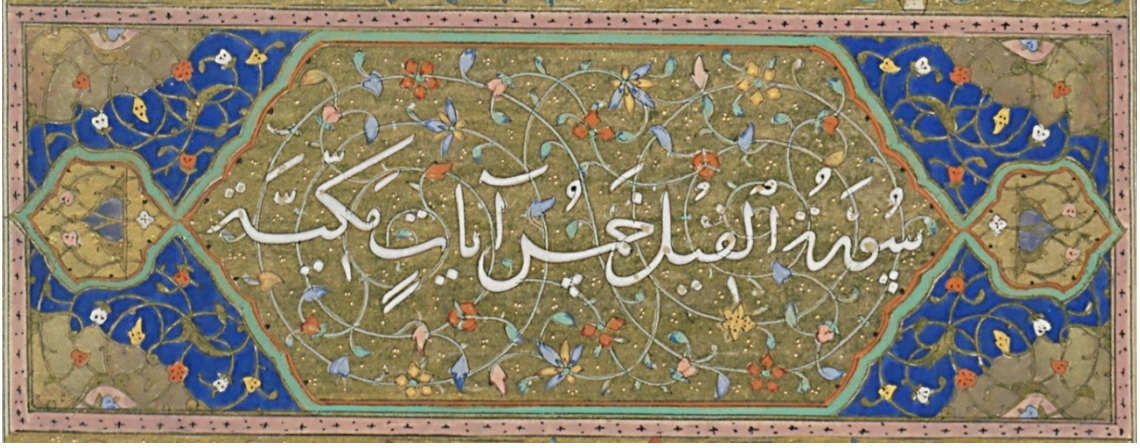 سُورَةُ ٱلفِيلِ خَمْسُ آيَاتٍ مَكِّيَّة